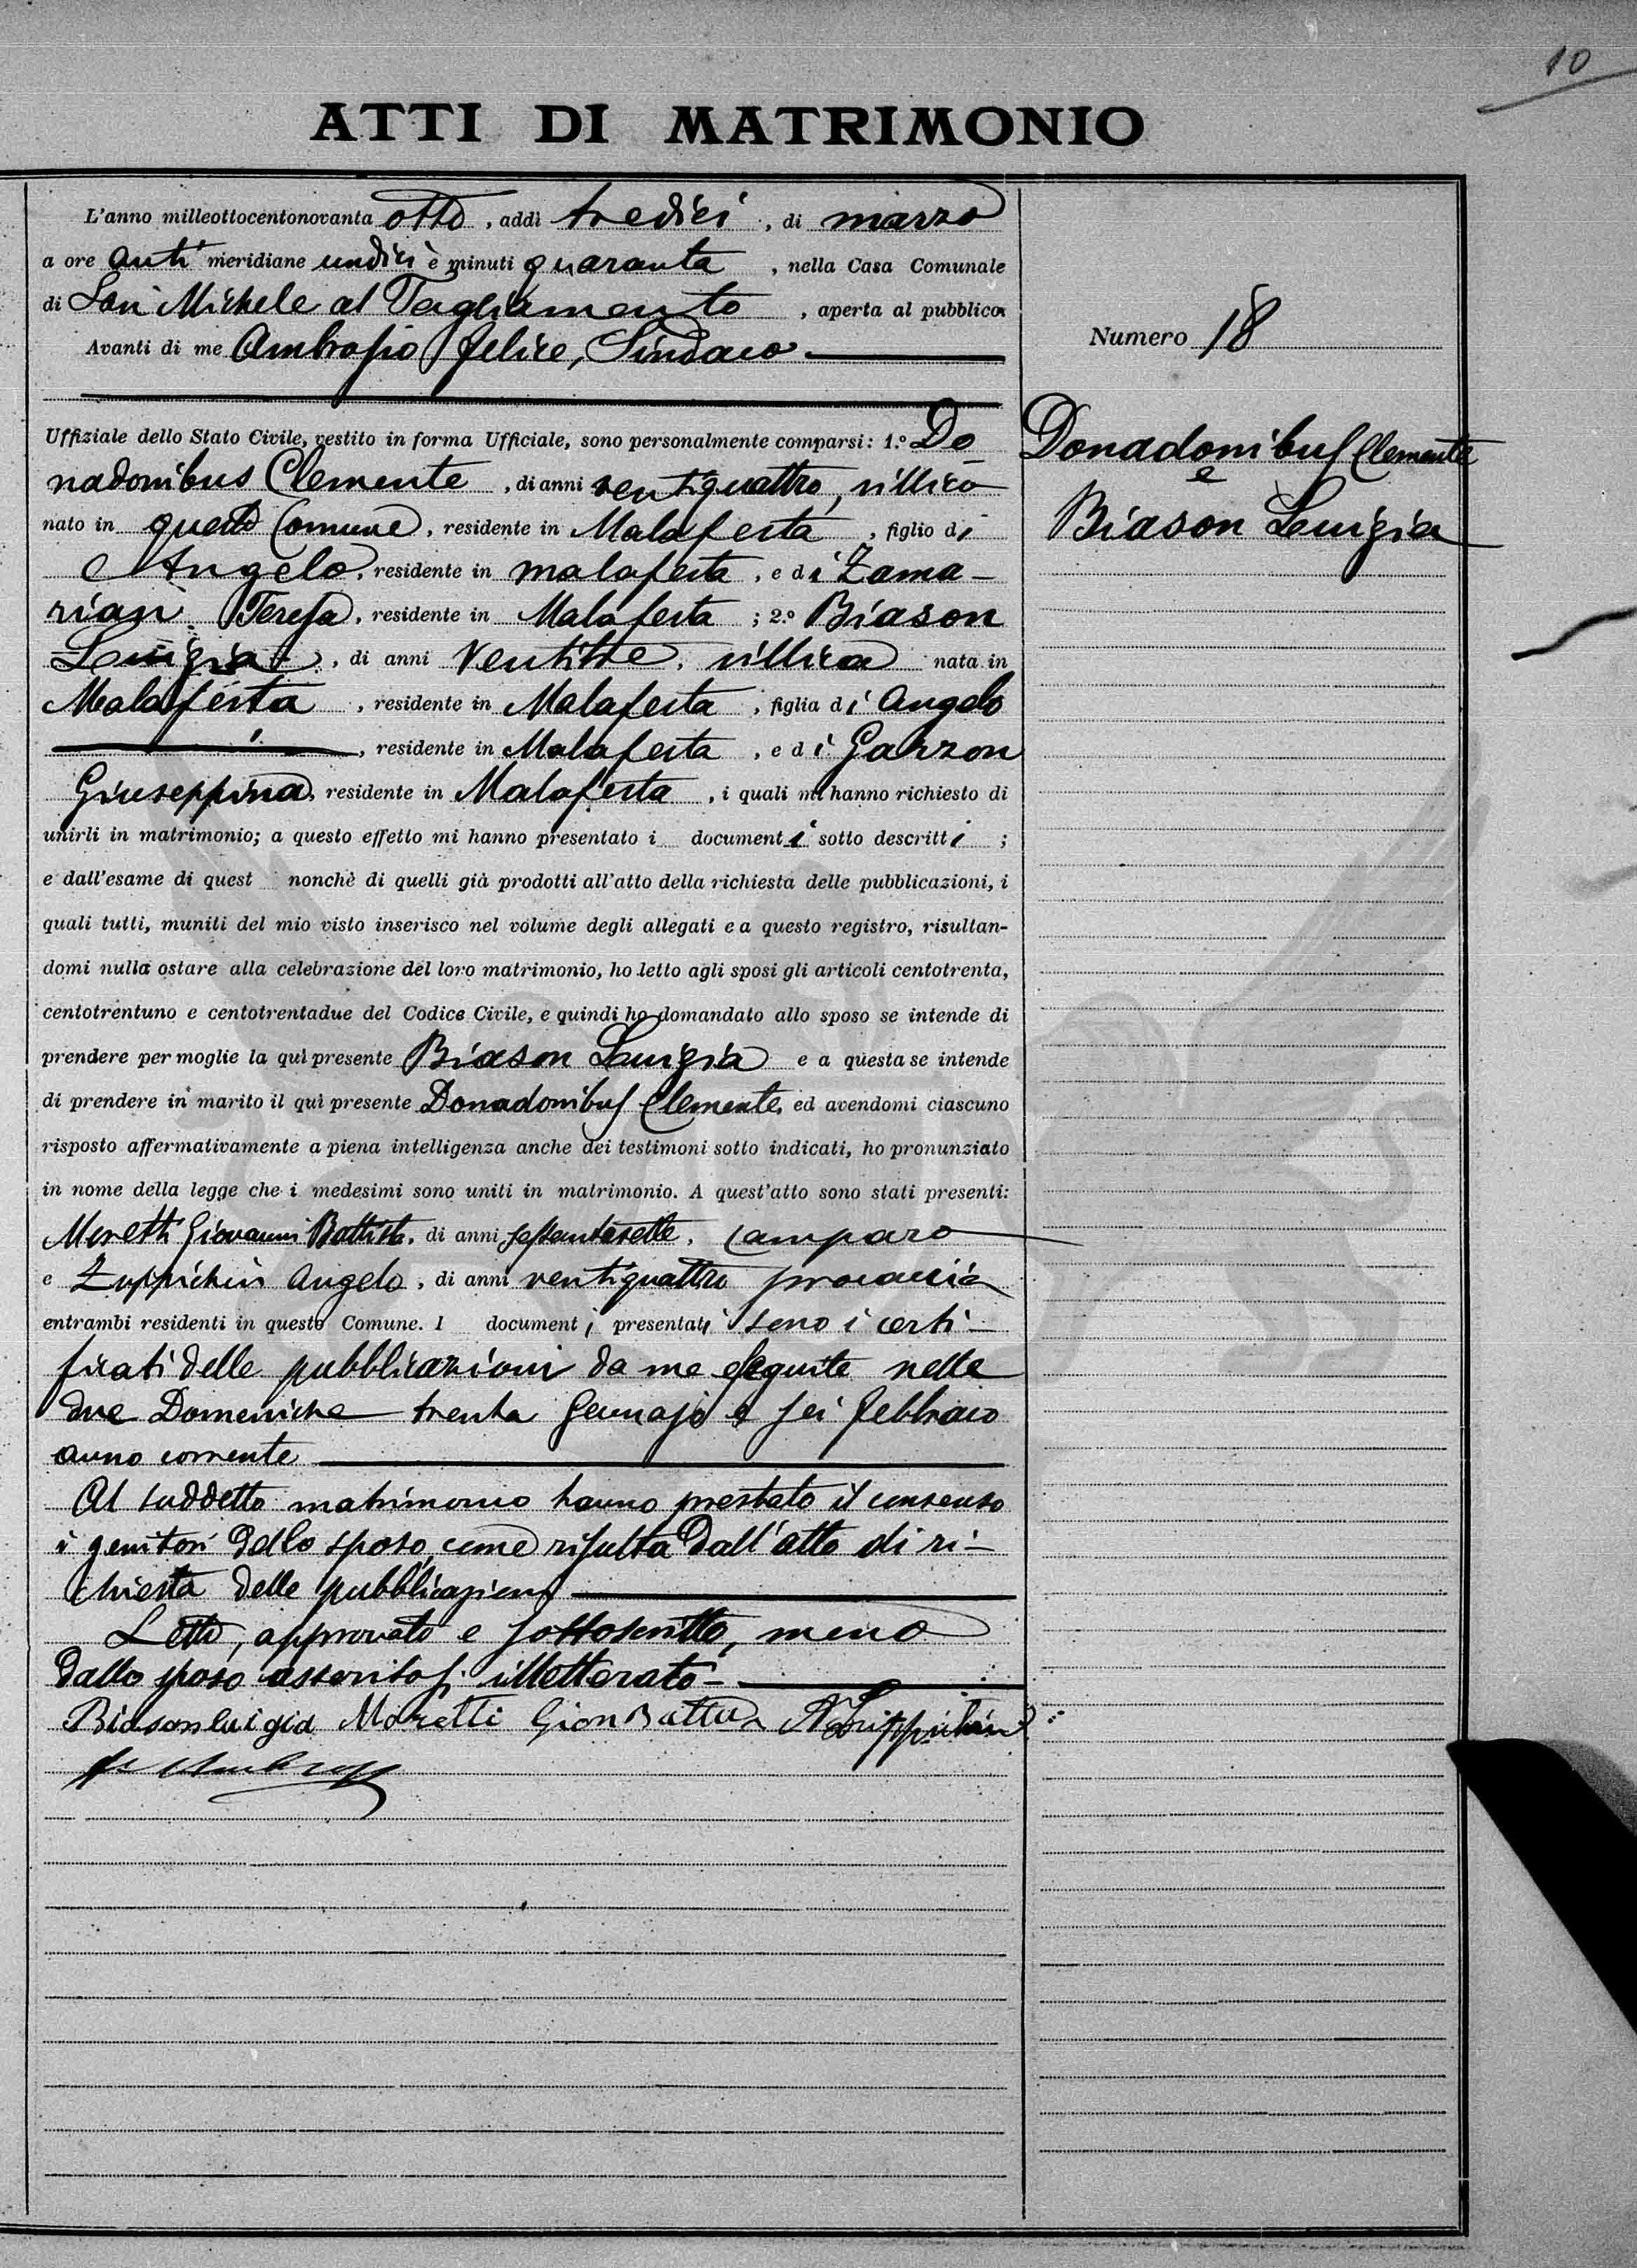 10
ATTI DI MATRIMONIO
L'anno milleottocentonovanta otto, addì tredici, di marzo
a ore anti meridiane undici e minuti quaranta, nella Casa Comunale
di San Michele al Tagliamento, aperta al pubblico
Avanti di me Ambrosio Felice, Sindaco
Uffiziale dello Stato Civile, vestito in forma Ufficiale, sono personalmente comparsi: 1.° Do
nadonibus Clemente, di anni ventiquattro, villico
nato in questo Comune, residente in Malafesta, figlio di
Angelo, residente in malafesta, e di Zama-
rian Teresa, residente in Malafesta; 2.° Biason
Luigia, di anni ventitre, villica nata in
Malafesta, residente in Malafesta, figlia di Angelo
, residente in Malafesta, e di Garzon
Giuseppina, residente in Malafesta, i quali mi hanno richiesto di
unirli in matrimonio; a questo effetto mi hanno presentato i documenti sotto descritti;
e dall'esame di quest nonchè di quelli già prodotti all'atto della richiesta delle pubblicazioni, i
quali tutti, muniti del mio visto inserisco nel volume degli allegati e a questo registro, risultan-
domi nulla ostare alla celebrazione del loro matrimonio, ho letto agli sposi gli articoli centotrenta,
centotrentuno e centotrentadue del Codice Civile, e quindi ho domandato allo sposo se intende di
prendere per moglie la quì presente Biason Luigia e a questa se intende
di prendere in marito il quì presente Donadonibus Clemente, ed avendomi ciascuno
risposto affermativamente a piena intelligenza anche dei testimoni sotto indicati, ho pronunziato
in nome della legge che i medesimi sono uniti in matrimonio. A quest'atto sono stati presenti:
Moretti Giovanni Battista, di anni sessantasette, camparo
e Zuppichin Angelo, di anni ventiquattro procaccia
entrambi residenti in questo Comune. I documenti presentati sono i certi-
ficati delle pubblicazioni da me eseguite nelle
due Domeniche trenta Gennajo e sei febbraio
anno corrente
Al suddetto matrimonio hanno prestato il consenso
i genitori dello sposo come risulta dall'atto di ri-
chiesta delle pubblicazioni
Letto, approvato e sottoscritto, meno
dallo sposo asseritosi illetterato-
Biason luigia Moretti Gion Batta A Zuppichin
Numero 18
Donadonibus Clemente
e
Biason Luigia